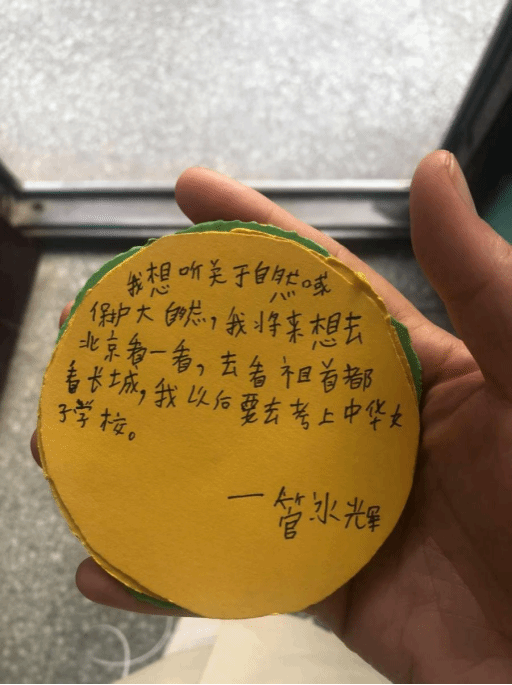 我想听关于自然或
保护大自然,我将来想去
北京看一看,去看祖首都
看长城,我以后要去考上中华女
子学校。
—管冰辉